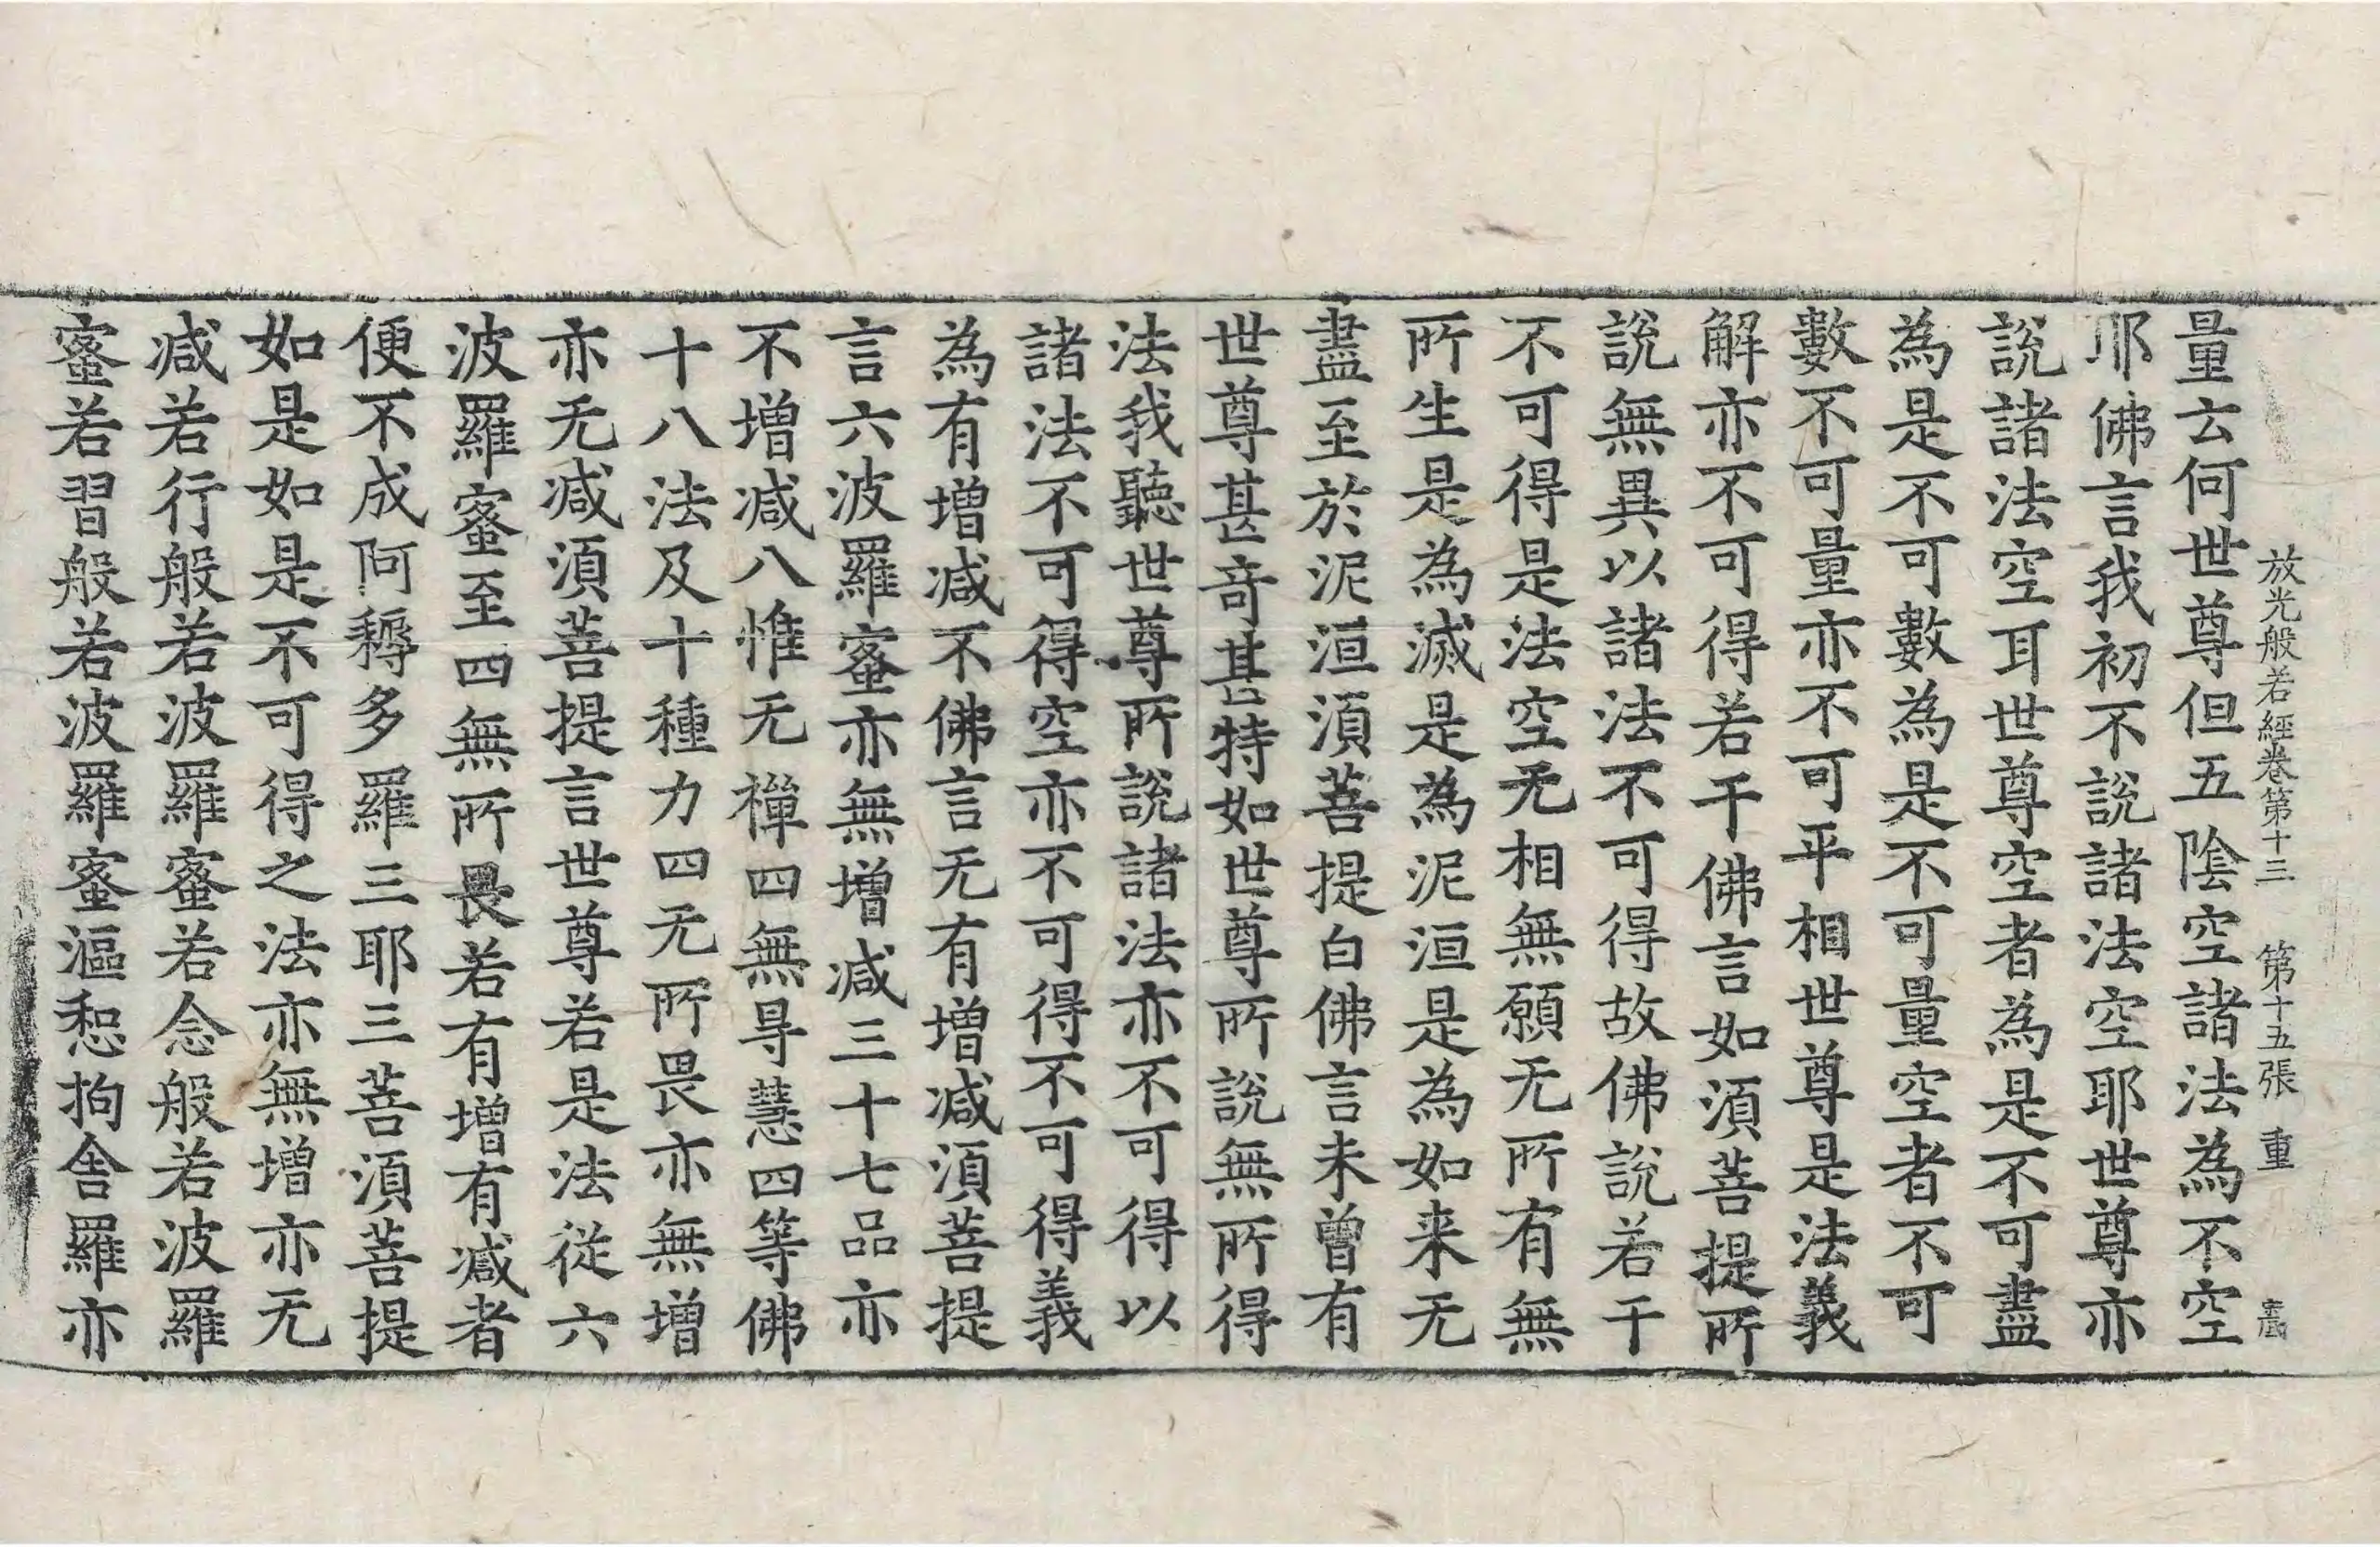 放光般若經卷第十三 第十五張 重
量云何世尊但五陰空諸法為不空
耶佛言我初不說諸法空耶世尊亦
說諸法空耳世尊空者為是不可盡
為是不可數為是不可量空者不可
數不可量亦不可平相世尊是法義
解亦不可得若干佛言如須菩提所
說無異以諸法不可得故佛說若干
不可得是法空无相無願无所有無
所生是為滅是為泥洹是為如来无
盡至於泥洹須菩提白佛言未曾有
世尊甚奇甚特如世尊所說無所得
法我聽世尊所說諸法亦不可得以
諸法不可得空亦不可得不可得義
為有增減不佛言无有增減須菩提
言六波羅蜜亦無增減三十七品亦
不增減八惟无禪四無㝵慧四等佛
十八法及十種力四无所畏亦無增
亦无減須菩提言世尊若是法從六
波羅蜜至四無所畏若有增有減者
便不成阿耨多羅三耶三菩須菩提
如是如是不可得之法亦無增亦无
減若行般若波羅蜜若念般若波羅
蜜若習般若波羅蜜漚惒拘舍羅亦